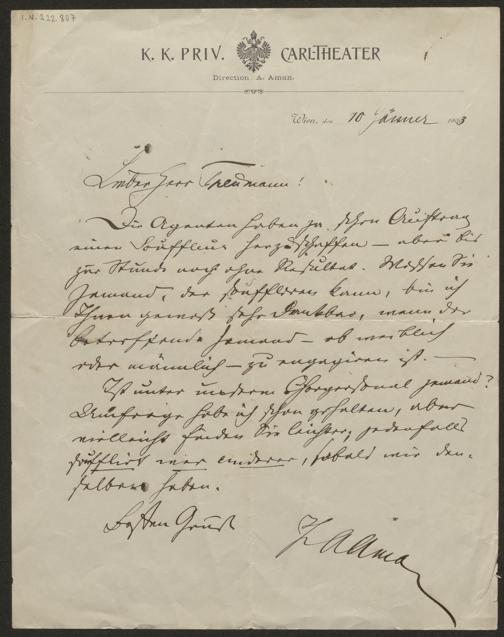 I.N. 222.807
K. K. PRIV. CARL-THEATER
Direction: A. Aman.
Wien, den 10 Jänner 1903
Lieber Herr Treumann!
Die Agenten haben ja schon Auftrag
einen Souffleur herzuschaffen – aber bis
zur Stunde noch ohne Resultat. Wissen Sie
Jemand, der souffliren kann, bin ich
Ihnen gewiß sehr dankbar, wenn der
betreffende Jemand – ob weiblich
oder männlich – zu engagiren ist. –
Ist unter unserem Chorpersonal jemand?
Anfrage habe ich schon gehalten, aber
vielleicht finden Sie leichter, jedenfalls
soufflirt wer anderer, sobald wir den-
selben haben.
Besten Gruß
Aman